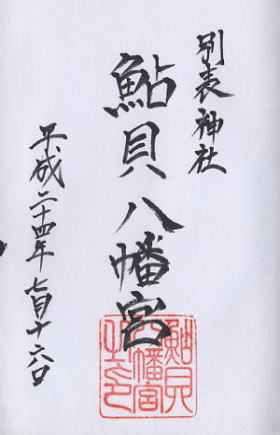 別表神社
鮎貝八幡宮
平成二十四年七月十六日
鮎貝
八幡宮
之印